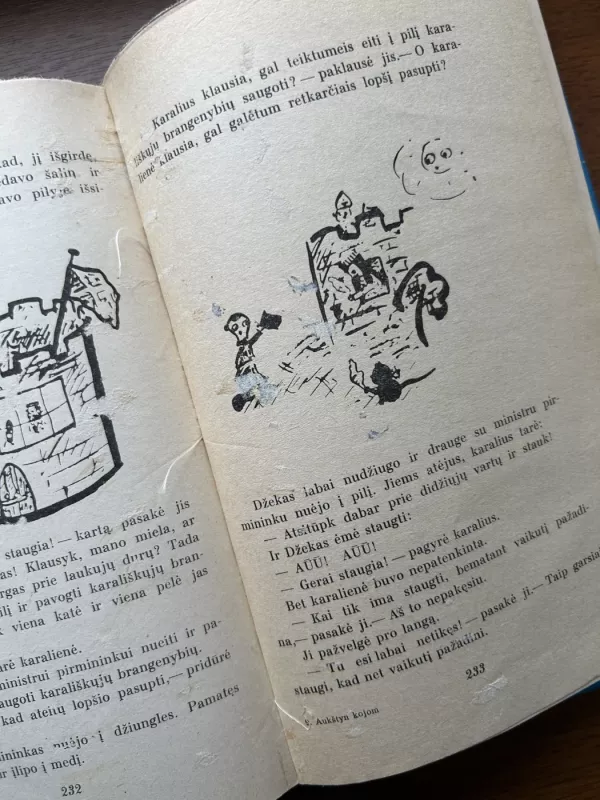 ad, jį išgirdę,
davo šalin ir
avo pilyje išsi-
staugia! — kartą pasakė jis
as! Klausyk, mano miela, ar
rgas prie laukujų durų? Tada
ilį ir pavogti karališkųjų bran-
k viena katė ir viena pelė jas
arė karalienė.
ministrui pirmininkui nueiti ir pa-
saugoti karališkųjų brangenybių.
kad ateitų lopšio pasupti,— pridūrė
mininkas nuėjo į džiungles. Pamatęs
ir įlipo į medį.
232
Karalius klausia, gal teiktumeis eiti į pilį kara-
liškųjų brangenybių saugoti? — paklausė jis.— O kara-
lienė klausia, gal galėtum retkarčiais lopšį pasupti?
Džekas labai nudžiugo ir drauge su ministru pir-
mininku nuėjo į pilį. Jiems atėjus, karalius tarė:
— Atsitūpk dabar prie didžiųjų vartų ir stauk!
Ir Džekas ėmė staugti:
— AŪŪ! AŪŪ!
— Gerai staugia! — pagyrė karalius.
Bet karalienė buvo nepatenkinta.
— Kai tik ima staugti, bematant vaikutį pažadi-
na,— pasakė ji.— Aš to nepakęsiu.
Ji pažvelgė pro langą.
— Tu esi labai netikęs! — pasakė ji.— Taip garsiai
staugi, kad net vaikutį pažadini.
233
Aukštyn kojom